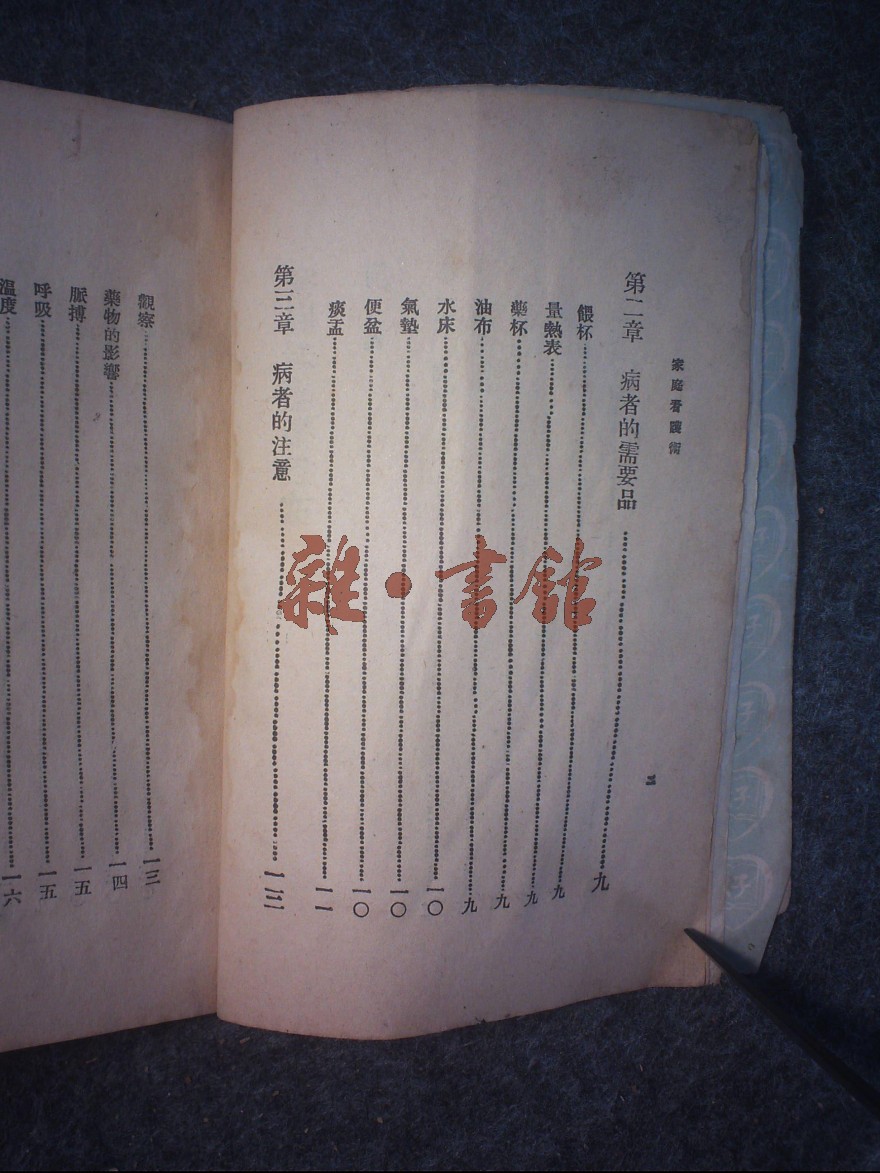 家庭看護術
第二章　病者的需要品……九
餵杯……九
量熱表……九
藥杯……九
油布……九
水床……一〇
氣墊……一〇
便盆……一〇
痰盂……一一
第三章　病者的注意……一三
觀察……一三
藥物的影響……一四
脈搏……一五
呼吸……一五
溫度……一六
雜·書館